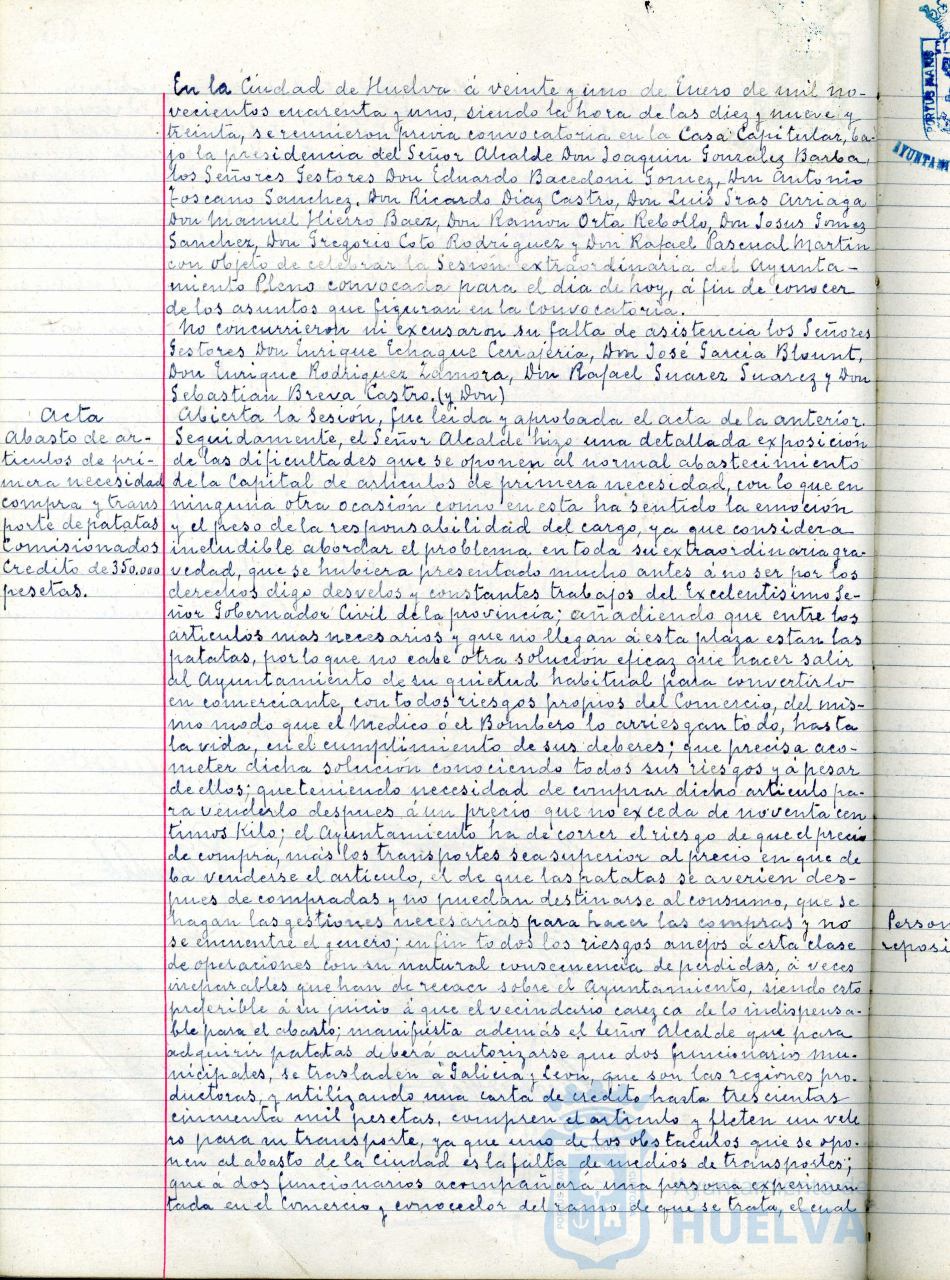 En la Ciudad de Huelva á veinte y uno de Enero de mil no-
vecientos cuarenta y uno, siendo la hora de las diez y nueve y
treinta, se reunieron previa convocatoria en la Casa Capitular, ba-
jo la presidencia del Señor Alcalde Don Joaquin González Barba,
los Señores Gestores Don Eduardo Bacedoni Gomez, Don Antonio
Toscano Sanchez, Don Ricardo Diaz Castro, Don Luis Sras Arriaga
Don Manuel Hierro Baez, Don Ramon Orta Rebollo, Don Josus Gomez
Sanchez, Don Gregorio Coto Rodriguez y Don Rafael Pascual Martin
con objeto de celebrar la Sesión extraordinaria del Ayunta-
miento Pleno convocada para el dia de hoy, á fin de conocer
de los asuntos que figuran en la Convocatoria.
No concurrieron ni excusaron su falta de asistencia los Señores
Gestores Don Enrique Echague Cerrajeria, Don José Garcia Blount,
Don Enrique Rodriguez Zamora, Don Rafael Suarez Suarez y Don
Sebastian Breva Castro. (y Don)
Acta
Abasto de ar-
ticulos de pri-
mera necesidad
compra y trans
porte de patatas
Comisionados
Credito de 350.000
pesetas.
Abierta la Sesión, fue leida y aprobada el acta de la anterior.
Seguidamente, el Señor Alcalde hizo una detallada exposición
de las dificultades que se oponen al normal abastecimiento
de la Capital de articulos de primera necesidad, con lo que en
ninguna otra ocasión como en esta ha sentido la emoción
y el peso de la responsabilidad del cargo, ya que considera
ineludible abordar el problema en toda su extraordinaria gra-
vedad, que se hubiera presentado mucho antes á no ser por los
derechos digo desvelos y constantes trabajos del Excelentisimo Se-
ñor Gobernador Civil de la provincia; añadiendo que entre los
articulos mas necesarios y que no llegan á esta plaza estan las
patatas, por lo que no cabe otra solución eficaz que hacer salir
al Ayuntamiento de su quietud habitual para convertirlo
en comerciante, con todos riesgos propios del Comercio, del mis-
mo modo que el Medico ó el Bombero lo arriesgan todo, hasta
la vida, en el cumplimiento de sus deberes; que precisa aco-
meter dicha solución conociendo todos sus riesgos y á pesar
de ellos; que teniendo necesidad de comprar dicho articulo pa-
ra venderlo despues á un precio que no exceda de noventa cen
timos Kilo; el Ayuntamiento ha de correr el riesgo de que el precio
de compra, más los transportes sea superior al precio en que de
ba venderse el articulo, el de que las patatas se averien des-
pues de compradas y no puedan destinarse al consumo, que se
hagan las gestiones necesarias para hacer las compras y no
se encuentre el genero; en fin todos los riesgos anejos á esta clase
de operaciones con su natural consecuencia de perdidas, á veces
irreparables que han de recaer sobre el Ayuntamiento, siendo esto
preferible á su juicio á que el vecindario carezca de lo indispensa-
ble para el abasto; manifiesta además el Señor Alcalde que para
adquirir patatas deberá autorizarse que dos funcionarios mu-
nicipales, se trasladen á Galicia y Leon, que son las regiones pro-
ductoras, y utilizando una carta de credito hasta trescientas
cincuenta mil pesetas, compren el articulo y fleten un vele
ro para su transporte, ya que uno de los obstaculos que se opo-
nen al abasto de la Ciudad es la falta de medios de transportes;
que á dos funcionarios acompañará una persona experimen
tada en el Comercio y conocedor del ramo de que se trata, el cual
Person
reposi
PORTUS MARIS
AYUNTAM
HUELVA